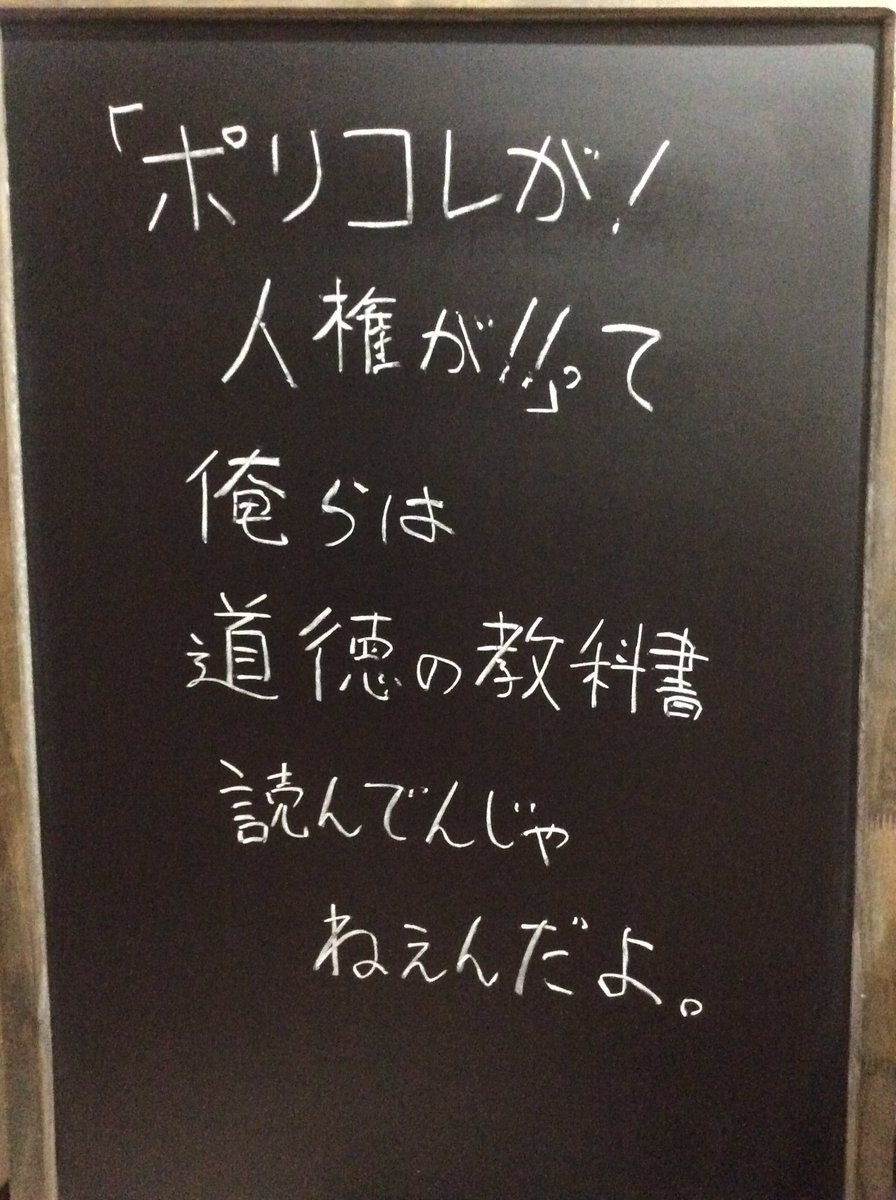 「ポリコレが!
人権が!!」って
俺らは
道徳の教科書
読んでんじゃ
ねぇんだよ。